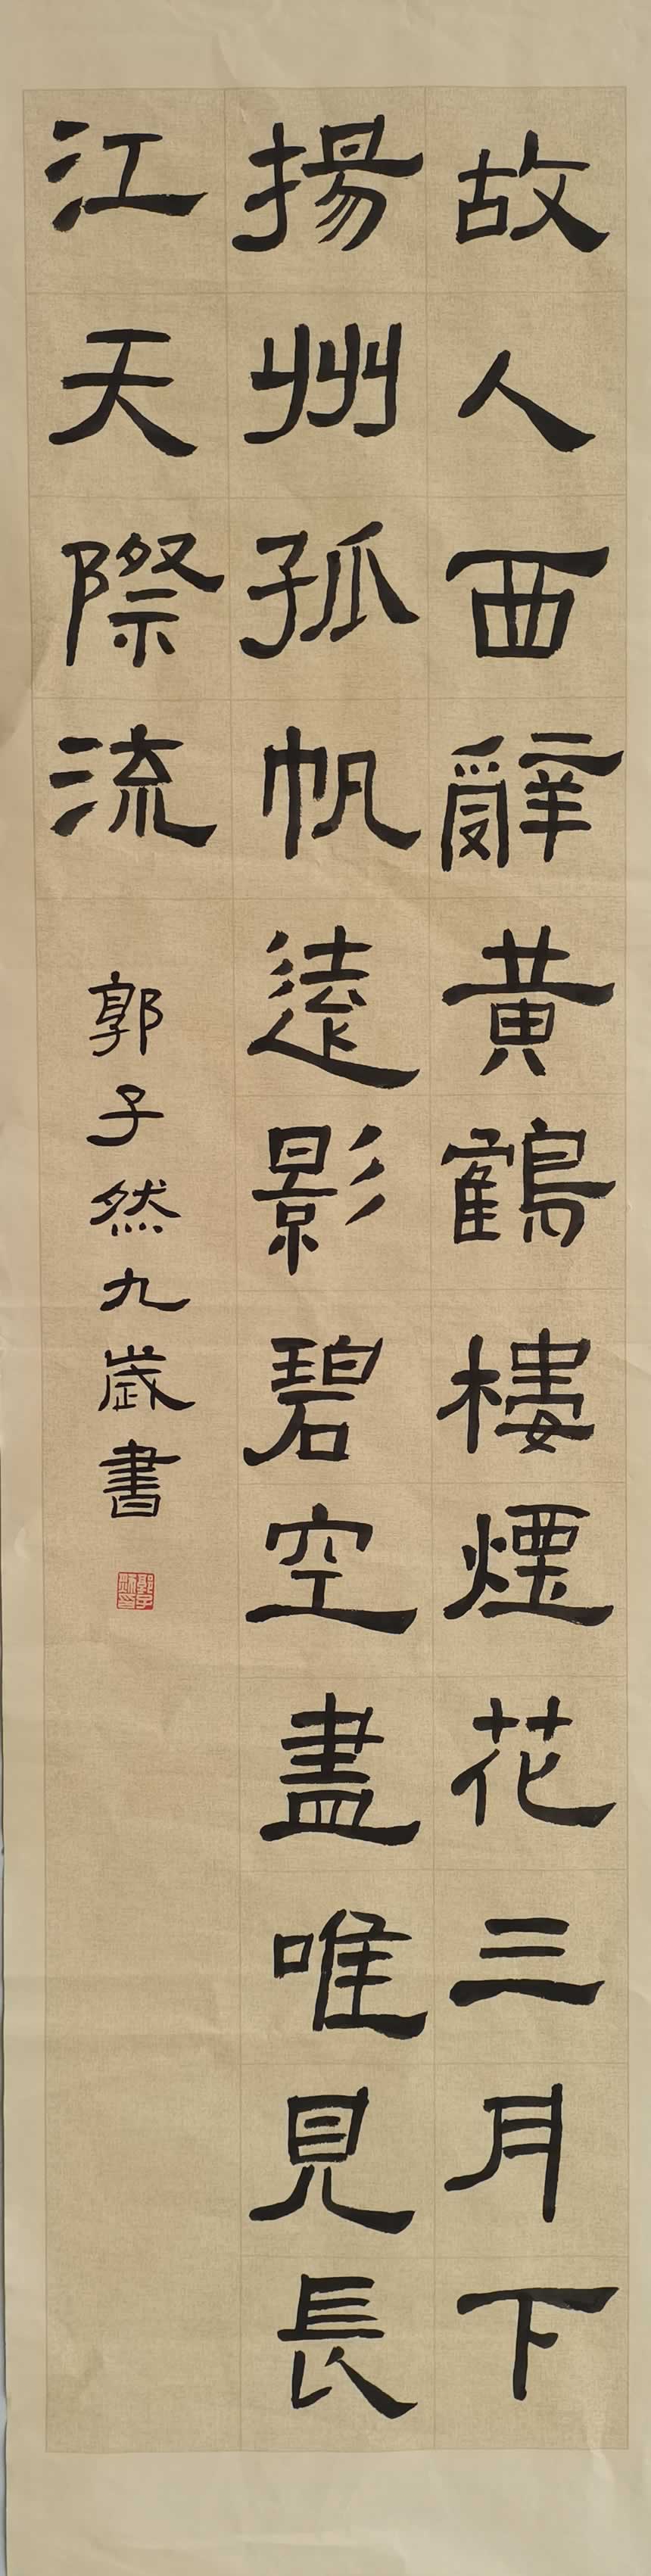 故人西辭黃鶴樓煙花三月下
揚州孤帆遠影碧空盡唯見長
江天際流
郭子然九歲書